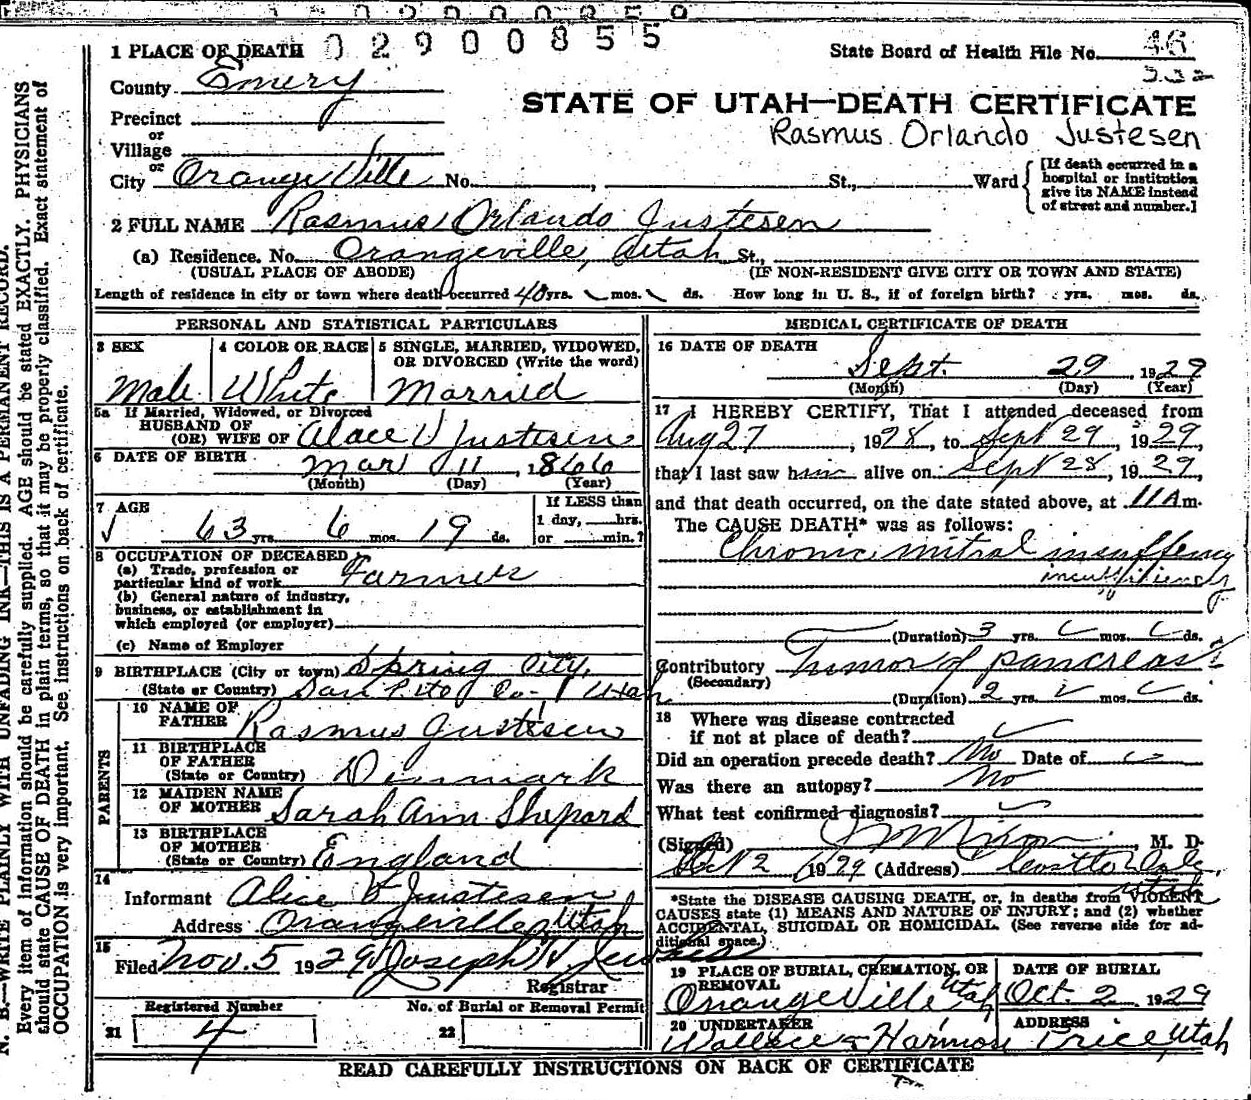 0 2 9 0 0 8 5 5
1 PLACE OF DEATH
State Board of Health File No. 46
County Emery
STATE OF UTAH—DEATH CERTIFICATE
Precinct
Rasmus Orlando Justesen
or
Village
or
City Orangeville No. , St., Ward
[If death occurred in a
hospital or institution
give its NAME instead
of street and number.]
2 FULL NAME Rasmus Orlando Justesen
(a) Residence. No. Orangeville, Utah St.,
(USUAL PLACE OF ABODE) (IF NON-RESIDENT GIVE CITY OR TOWN AND STATE)
Length of residence in city or town where death occurred 40 yrs. mos. ds. How long in U. S., if of foreign birth? yrs. mos. ds.
PERSONAL AND STATISTICAL PARTICULARS
3 SEX
Male
4 COLOR OR RACE
White
5 SINGLE, MARRIED, WIDOWED,
OR DIVORCED (Write the word)
Married
5a If Married, Widowed, or Divorced
HUSBAND OF
(OR) WIFE OF Alace V Justesen
6 DATE OF BIRTH Mar 11, 1866
(Month) (Day) (Year)
7 AGE
63 yrs. 6 mos. 19 ds.
If LESS than
1 day, hrs.
or min.?
8 OCCUPATION OF DECEASED
(a) Trade, profession or
particular kind of work Farmer
(b) General nature of industry,
business, or establishment in
which employed (or employer)
(c) Name of Employer
9 BIRTHPLACE (City or town) Spring City,
(State or Country) San Pito Co- Utah
PARENTS
10 NAME OF
FATHER Rasmus Justesen
11 BIRTHPLACE
OF FATHER
(State or Country) Dinmark
12 MAIDEN NAME
OF MOTHER Sarah Ann Shepard
13 BIRTHPLACE
OF MOTHER
(State or Country) England
14
Informant Alice V Justesen
Address Orangeville, Utah
15
Filed Nov. 5 1929 Joseph H.
Registrar
Registered Number
21 4
No. of Burial or Removal Permit
22
MEDICAL CERTIFICATE OF DEATH
16 DATE OF DEATH
Sept. 29, 1929
(Month) (Day) (Year)
17 I HEREBY CERTIFY, That I attended deceased from
Aug 27, 1928, to Sept 29, 1929
that I last saw him alive on Sept 28, 1929,
and that death occurred, on the date stated above, at 11 A m.
The CAUSE DEATH* was as follows:
Chronic mitral insuffency
insufficiency
(Duration) 3 yrs. mos. ds.
Contributory Tumor of pancreas?
(Secondary)
(Duration) 2 yrs. mos. ds.
18 Where was disease contracted
if not at place of death?
Did an operation precede death? No Date of
Was there an autopsy? No
What test confirmed diagnosis?
(Signed) Nixon, M. D.
Oct 2 1929 (Address) Castle Dale
Utah
*State the DISEASE CAUSING DEATH, or, in deaths from VIOLENT
CAUSES state (1) MEANS AND NATURE OF INJURY; and (2) whether
ACCIDENTAL, SUICIDAL OR HOMICIDAL. (See reverse side for ad-
ditional space.)
19 PLACE OF BURIAL, CREMATION, OR
REMOVAL
Orangeville Utah
DATE OF BURIAL
Oct. 2 1929
20 UNDERTAKER
Wallace & Harmon
ADDRESS
Price, Utah
READ CAREFULLY INSTRUCTIONS ON BACK OF CERTIFICATE
N. B.—WRITE PLAINLY WITH UNFADING INK—THIS IS A PERMANENT RECORD.
Every item of information should be carefully supplied. AGE should be stated EXACTLY. PHYSICIANS
should state CAUSE OF DEATH in plain terms, so that it may be properly classified. Exact statement of
OCCUPATION is very important. See instructions on back of certificate.